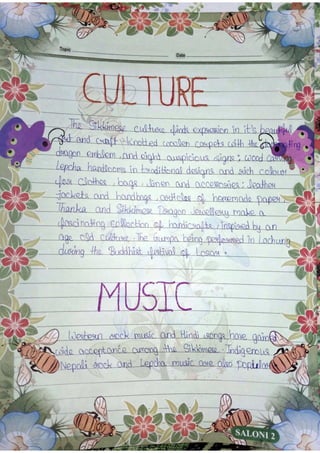 Topic
Date
CULTURE
The Sikkimese culture finds expression in it's beautiful
art and craft - knotted woolen carpets with the
dragon emblem and eight auspicious signs; wood carving
Lepcha handlooms in traditional designs and rich colour
for clothes, bags, linen and accessories; leather
jackets and handbags, articles of homemade paper.
Thanka and Sikkimese Dragon Jewellery make a
fascinating collection of handicrafts inspired by an
age old culture. The being performed in Lachung
during the Buddhist festival of Losar.
MUSIC
Western rock music and Hindi songs have gained
wide acceptance among the Sikkimese. Indigenous
Nepali rock and Lepcha music are also popular
SALONI 2